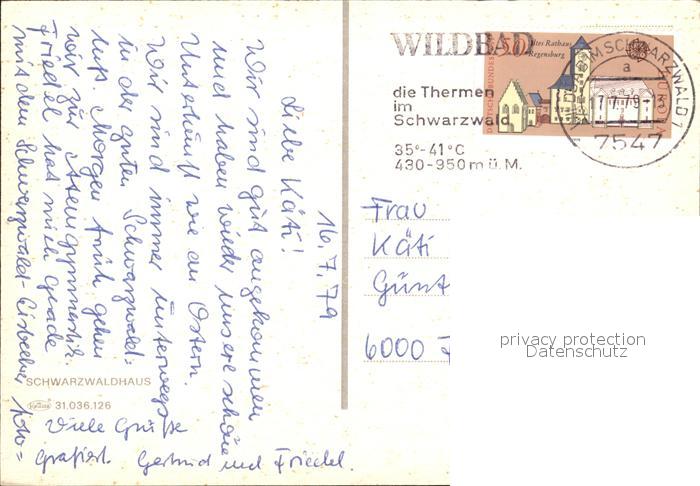 16.7.79
Liebe Käti!
Wir sind gut angekommen
und haben wieder unsere schöne
Unterkunft wie an Ostern.
Wir sind immer unterwegs
in der guten Schwarzwald-
luft. Morgen früh gehen
wir zur Atemgymnastik.
Friedel hat mich gerade
mit dem Schwarzwald-Eisbecher foto=
grafiert.
Viele Grüße
Gertrud und Friedel.
SCHWARZWALDHAUS
31.036.126
WILDBAD
die Thermen
im
Schwarzwald
35°-41°C
430-950 m ü. M.
50
Altes Rathaus
Regensburg
DEUTSCHE BUNDESPOST
IM SCHWARZWALD 1
a
17.7.79
7547
Frau
Käti
Günt
6000 F
privacy protection
Datenschutz